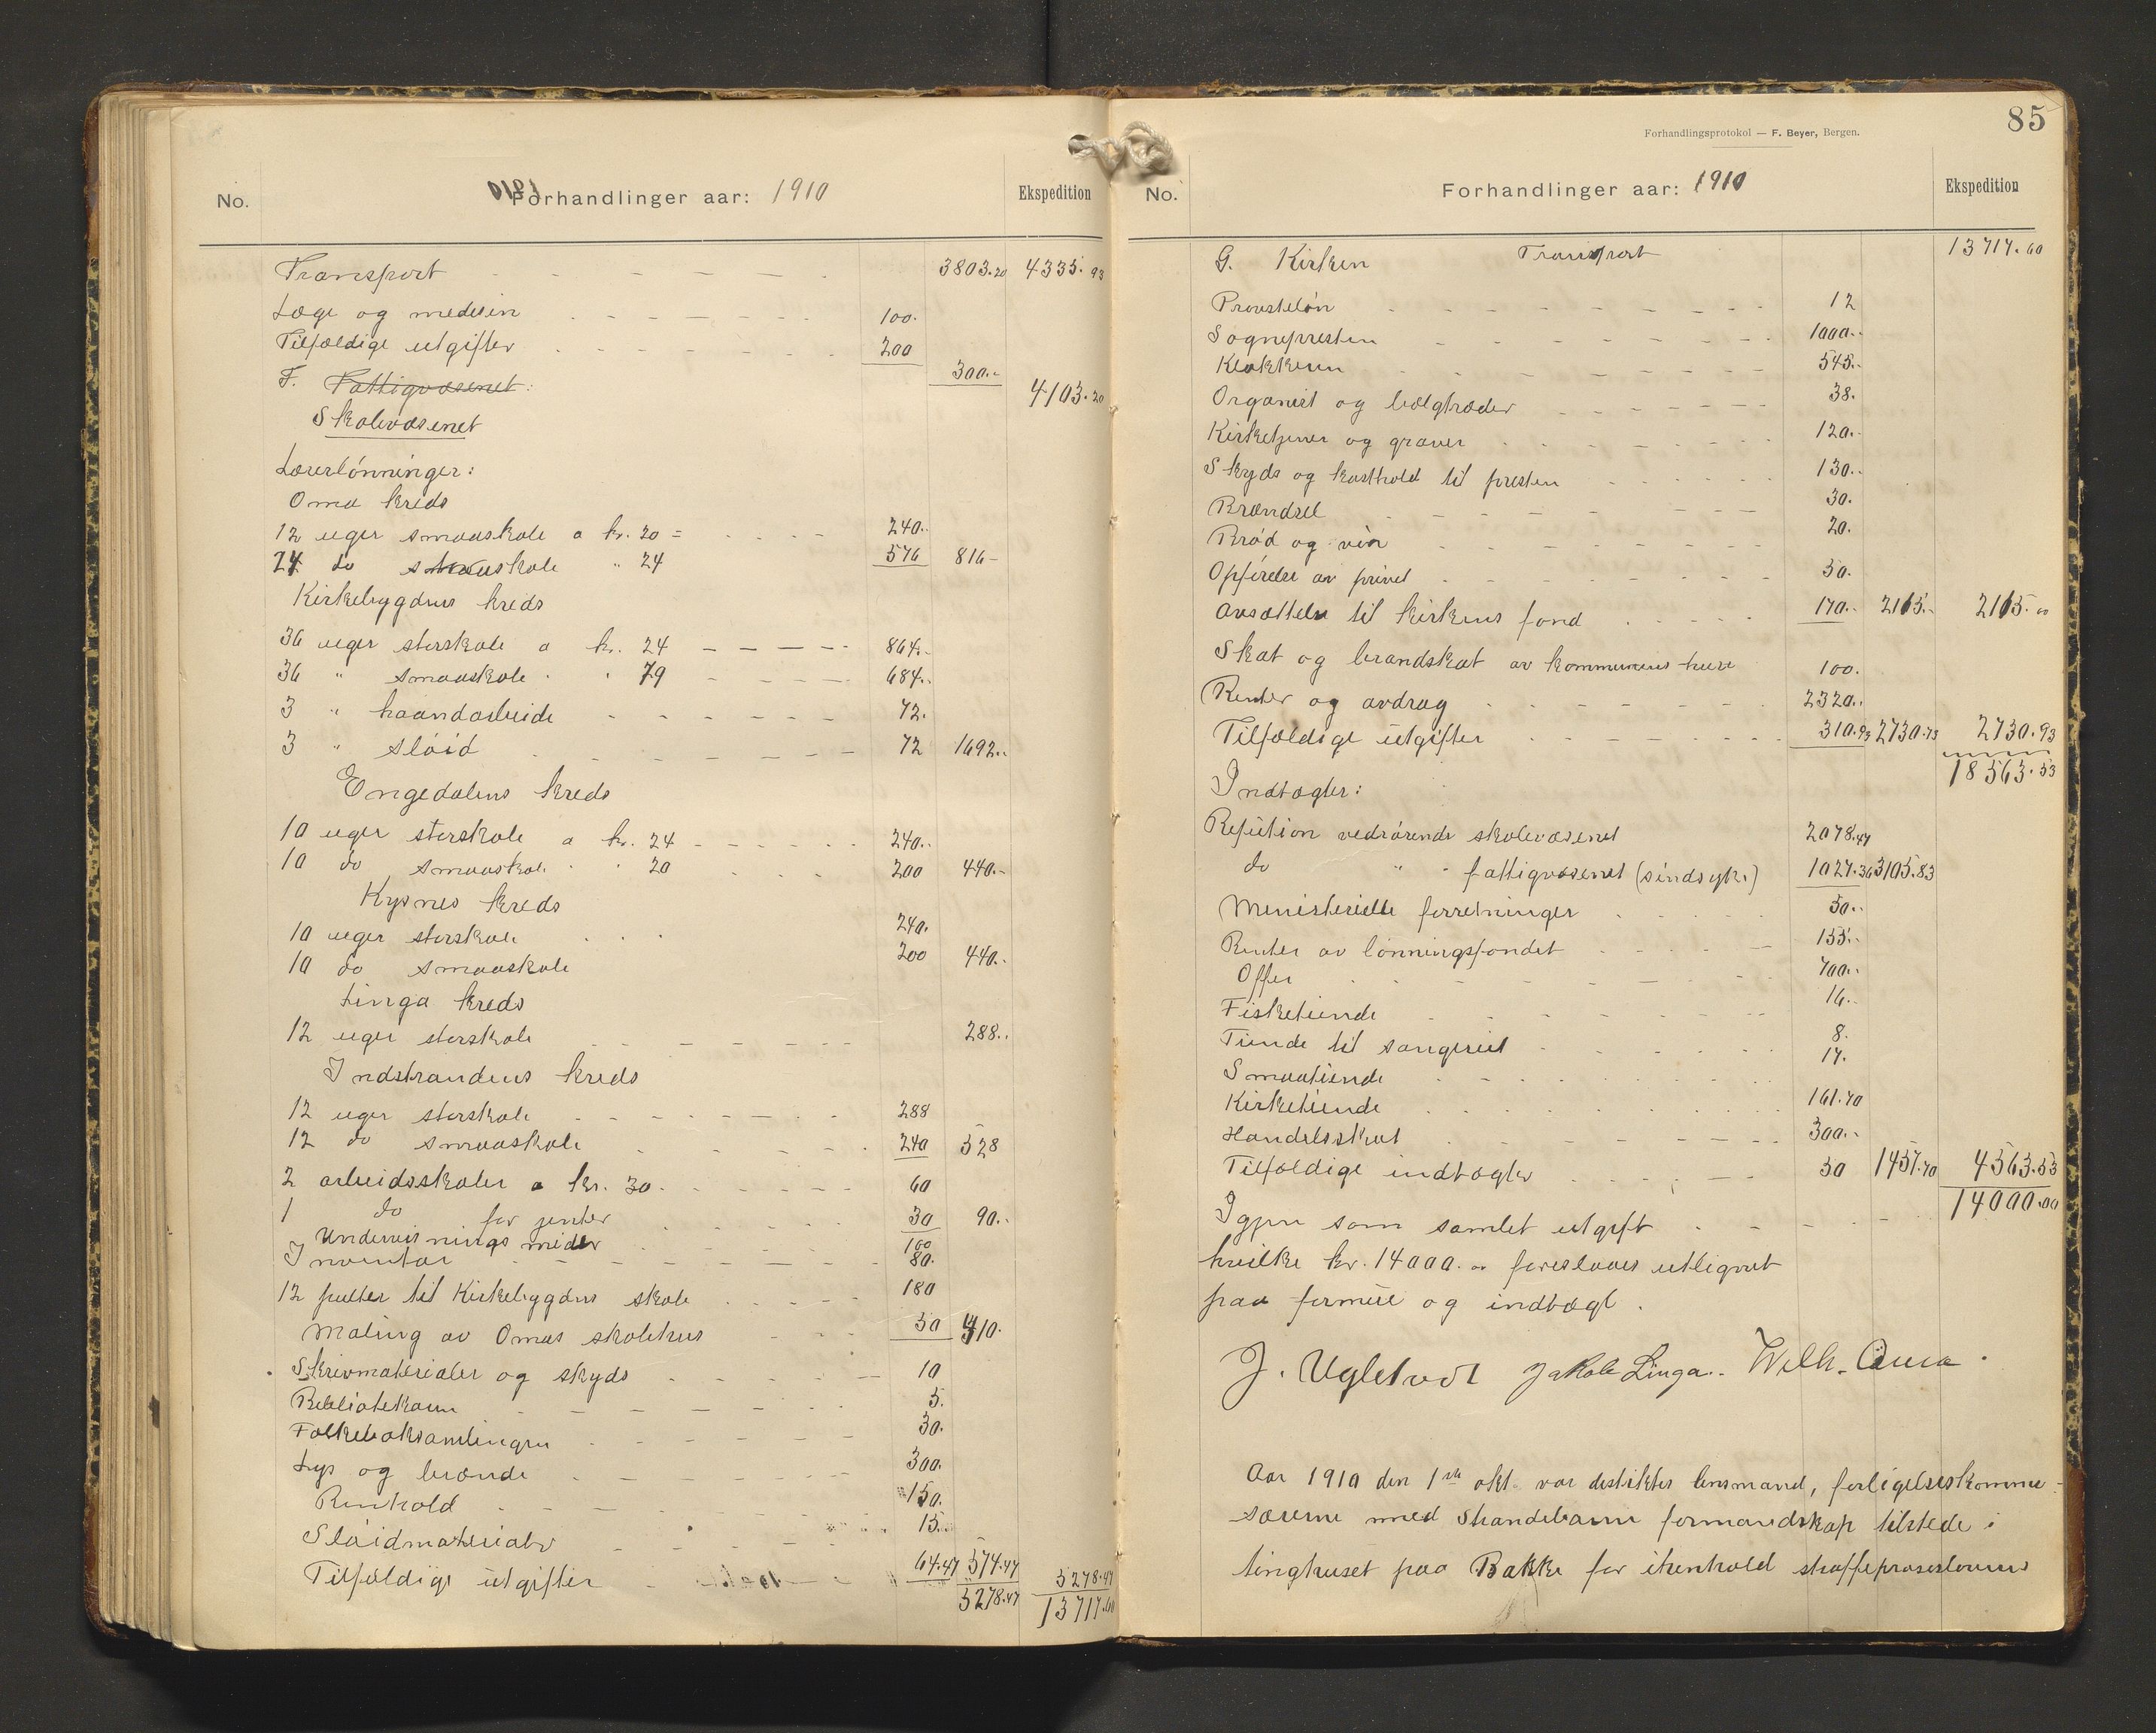 No. Forhandlinger aar: 1910 Ekspedition
Transport 3803.20 4335.93
Læge og medesin 100.
Tilfældige utgifter 200
300.-
F. Fattigvæsenet: 4103.20
Skolevæsenet
Lærerlønninger:
Oma kreds
12 uger smaaskole a kr. 20 = 240.-
24 do skole " 24 576 816-
Kirkebygdens kreds
36 uger storskole a kr. 24 864.-
36 " smaaskole " 19 684.-
3 " haandarbeide 72.
3 " sløid 72 1692.-
Engedalens kreds
10 uger storskole a kr. 24 240.-
10 do smaaskole " 20 200 440.-
Kysnes kreds
10 uger storskole 240.
10 do smaaskole 200 440.-
Linga kreds
12 uger storskole 288.-
Indstrandens kreds
12 uger storskole 288
12 do smaaskole 240 528
2 arbeidsskoler a kr. 30 60
1 do for jenter 30 90.-
Undervisnings midler 100
Inventar 80.
12 pulter til Kirkebygdens skole 180
Maling av Omas skolehus 50 410.
Skrivmaterialer og skyds 10
Bibliotekaren 5.
Folkeboksamlingen 30.
Lys og brænde 300.
Renhold 150.
Sløidmaterialer 15.
Tilfældige utgifter 64.47 574.47 5278.47
5278.47 13717.60
Forhandlingsprotokol — F. Beyer, Bergen.
85
No. Forhandlinger aar: 1910 Ekspedition
G. Kirken Transport 13717.60
Provsteløn 12
Sognepresten 1000.-
Klokkeren 545.-
Organist og bælgtræder 38.
Kirketjener og graver 120.-
Skyds og kosthold til presten 130.-
Brændsel 30.
Brød og vin 20.
Opførelse av privet 50.
Avsættelse til kirkens fond 170.- 2115.- 2115.00
Skat og brandskat av kommunens huse 100.
Renter og avdrag 2320.-
Tilfældige utgifter 310.93 2730.93 2730.93
18563.53
Indtægter:
Refution vedrørende skolevæsenet 2078.47
do " fattigvæsenet (sindsyke) 1027.36 3105.83
Ministerielle forretninger 50.-
Renter av lønningsfondet 155.-
Offer 700.-
Fisketiende 16.-
Tiende til sangeriet 8.
Smaatiende 17.
Kirketiende 161.70
Handelsskat 300.-
Tilfældige indtægter 50 1457.70 4563.53
Igjen som samlet utgift 14000.00
hvilke kr. 14000.00 foreslaaes utlignet
paa formue og indtægt.
J. Ugletvedt Jakob Linga. Wilh. Oma.
Aar 1910 den 1ste okt. var distriktets lensmand, forligelseskomme-
særerne med Strandebarm formandskap tilstede i
tinghuset paa Bakke for i henhold straffeproseslovens